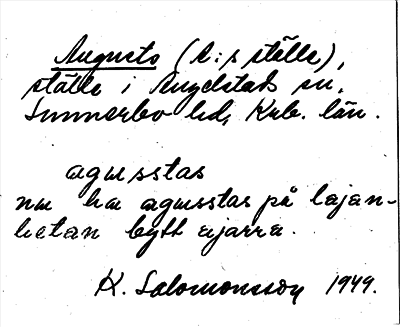 Augusts (A:s ställe),
ställe i Angelstads sn,
Sunnerbo hd, Krb. län.
agusstas
nu ha agusstas på lajan-
hetan bytt ajarra.
K. Salomonsson 1949.